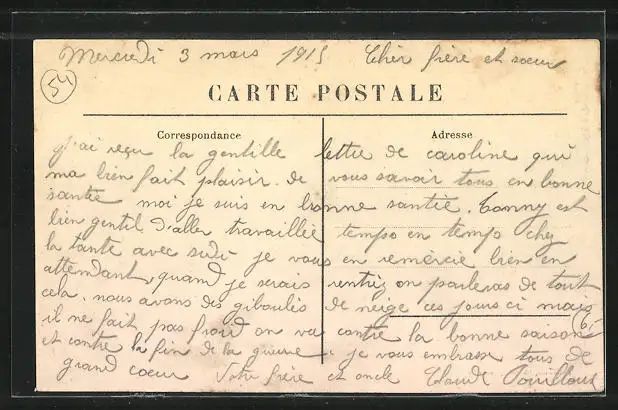 Mercredi 3 mars 1915 Cher frère et sœur
54
CARTE POSTALE
Correspondance Adresse
j'ai reçu la gentille lettre de caroline qui
ma bien fait plaisir. de vous savoir tous en bonne
santie moi je suis en bonne santié. Tonny est
bien gentil d'aller travaillée temps en temp chez
la tante avec je vous en remercie bien en
attendant, quand je serais rentriz on parleras de tout
cela. nous avons des giboulés de neige ces jours ci mais
il ne fait pas froid on va contre la bonne saison
et contre la fin de la guerre. je vous embrasse tous de
grand coeur Votre frère et oncle Claude